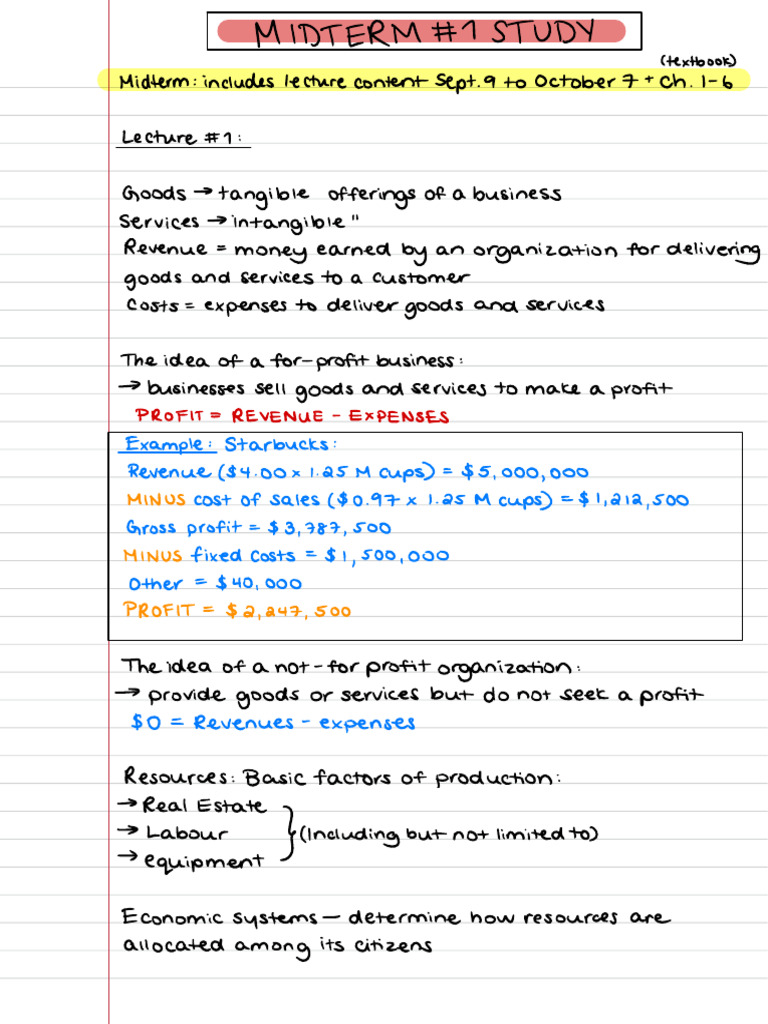 MIDTERM #1 STUDY
(textbook)
Midterm: includes lecture content Sept. 9 to October 7 + Ch. 1-6
Lecture #1:
Goods → tangible offerings of a business
Services → intangible "
Revenue = money earned by an organization for delivering
goods and services to a customer
Costs = expenses to deliver goods and services
The idea of a for-profit business:
→ businesses sell goods and services to make a profit
PROFIT = REVENUE - EXPENSES
Example: Starbucks:
Revenue ($4.00 x 1.25 M cups) = $5,000,000
MINUS cost of sales ($0.97 x 1.25 M cups) = $1,212,500
Gross profit = $3,787,500
MINUS fixed costs = $1,500,000
Other = $40,000
PROFIT = $2,247,500
The idea of a not-for profit organization:
→ provide goods or services but do not seek a profit
$0 = Revenues - expenses
Resources: Basic factors of production:
→ Real Estate
→ Labour } (Including but not limited to)
→ equipment
Economic systems — determine how resources are
allocated among its citizens